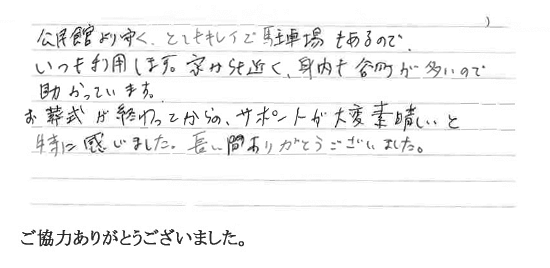 )
公民館より安く、とてもキレイで駐車場もあるので、
いつも利用します。家からも近く、身内も谷町が多いので
助かっています。
お葬式が終わってからの、サポートが大変素晴しいと
特に感じました。長い間ありがとうございました。
ご協力ありがとうございました。